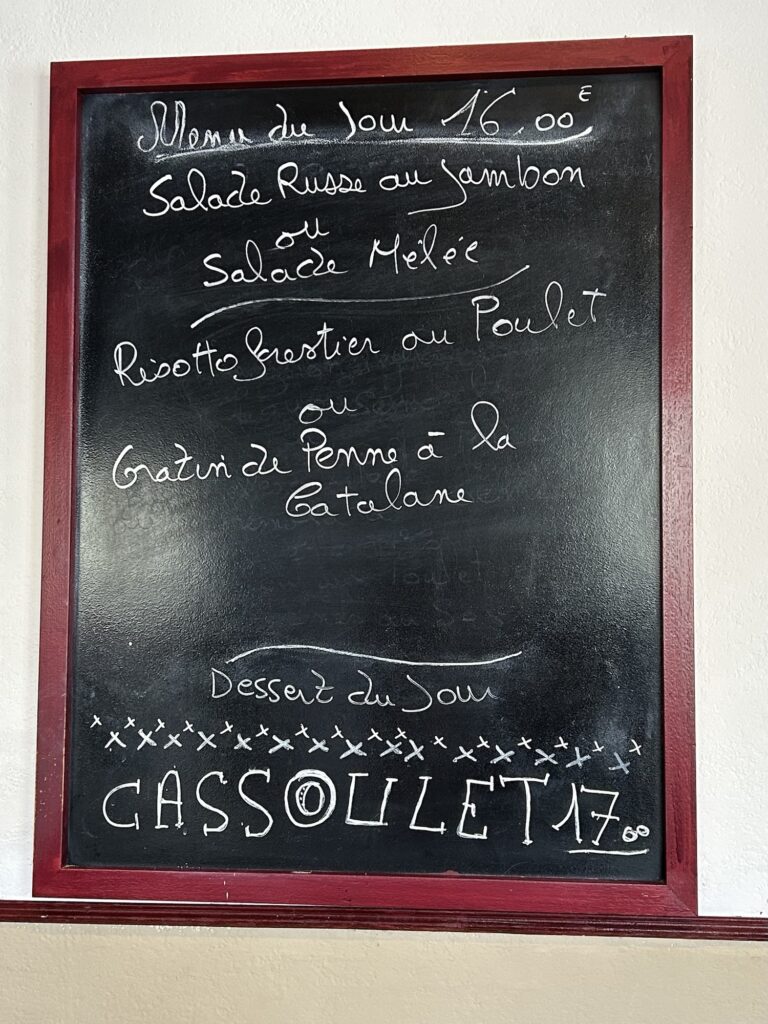 Menu du Jour 16.00€
Salade Russe au Jambon
ou
Salade Mêlée
Risotto forestier au Poulet
ou
Gratin de Penne à la
Catalane
Dessert du Jour
CASSOULET 17.00